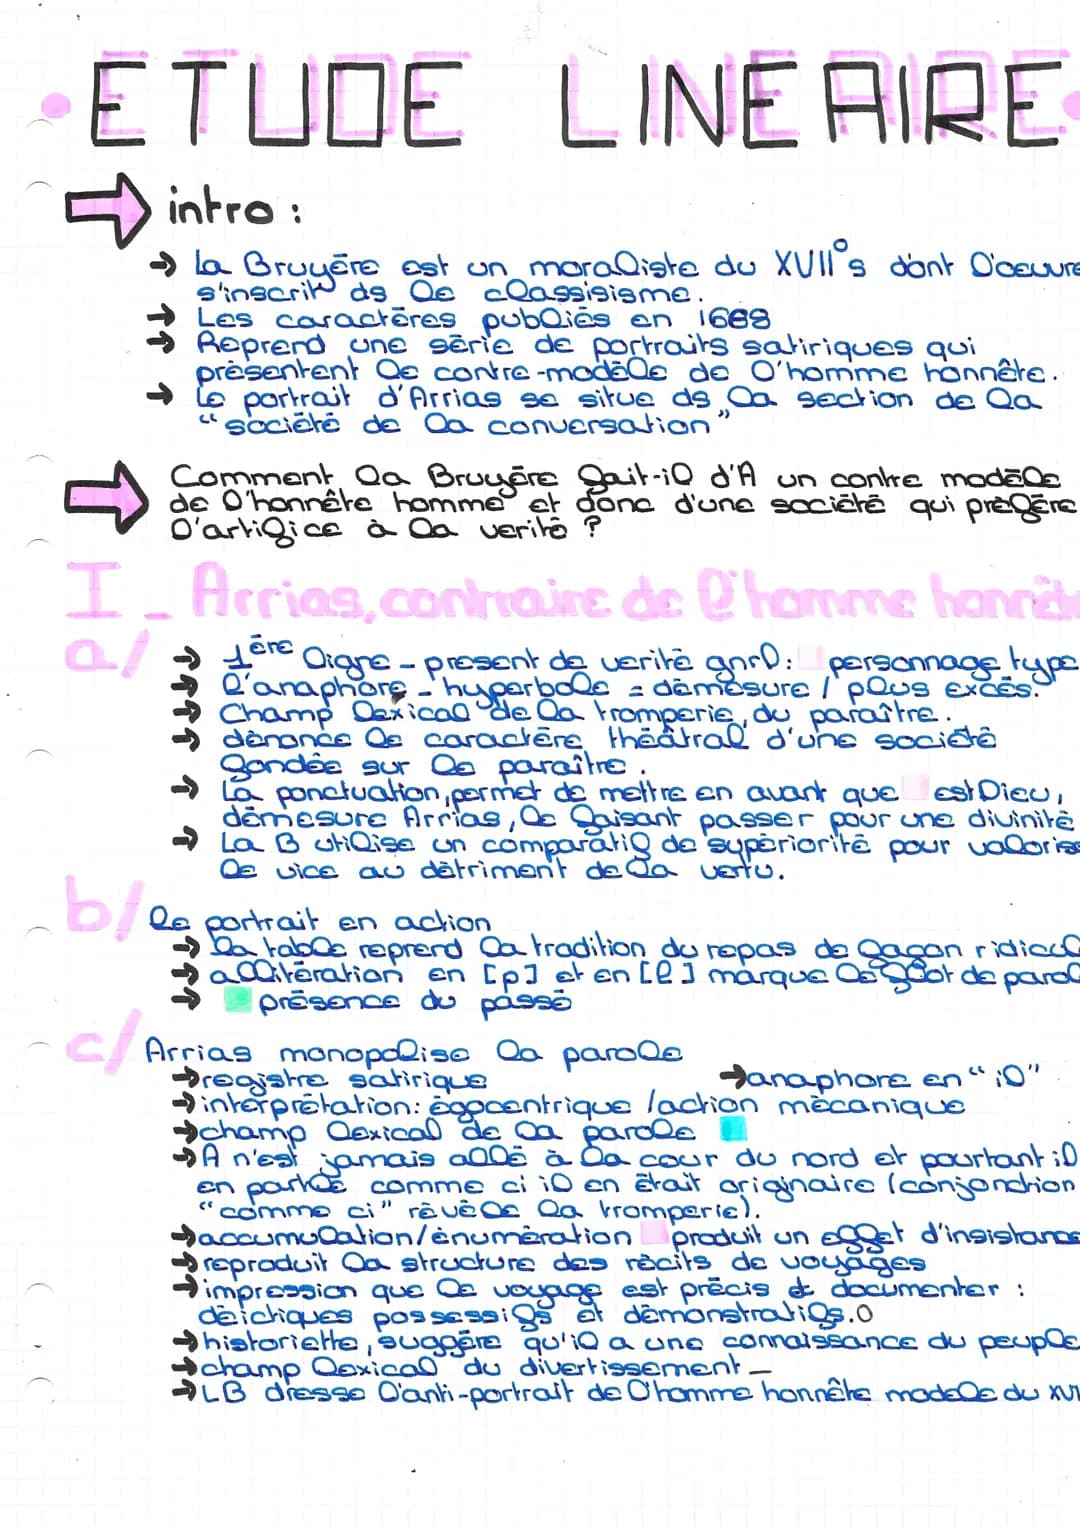 • ETUDE LINEAIRE •
intro :
→ La Bruyère est un moraliste du XVII°s dont l'oeuvre
s'inscrit ds le classisisme.
→ Les caractères publiés en 1688
→ Reprend une série de portraits satiriques qui
présentent le contre-modèle de l'homme honnête.
→ Le portrait d'Arrias se situe ds la section de la
"société de la conversation"
Comment la Bruyère fait-il d'A un contre modèle
de l'honnête homme et donc d'une société qui préfère
l'artifice à la verité ?
I_ Arrias, contraire de l'homme honnête
a/
→ 1ère ligne - present de verité gnrl: personnage type
→ l'anaphore - hyperbole = démesure / plus excés.
→ Champ lexical de la tromperie, du paraître.
→ dénonce le caractère théâtral d'une société
fondée sur le paraître.
→ La ponctuation, permet de mettre en avant que est Dieu,
démesure Arrias, le faisant passer pour une divinité
→ La B utilise un comparatif de supériorité pour valorise
le vice au détriment de la vertu.
b/ le portrait en action
→ la table reprend la tradition du repas de façon ridicul
→ allitération en [p] et en [l] marque le flot de parol
→ présence du passé
c/ Arrias monopolise la parole
→ registre satirique → anaphore en "il"
→ interprétation: égocentrique /action mécanique
→ champ lexical de la parole
→ A n'est jamais allé à la cour du nord et pourtant il
en parle comme ci il en était originaire (conjonction
"comme ci" révèle la tromperie).
→ accumulation/énumération produit un effet d'insistance
→ reproduit la structure des récits de voyages
→ impression que le voyage est précis et documenter :
déictiques possessifs et démonstratifs.O
→ historiette, suggère qu'il a une connaissance du peuple
→ champ lexical du divertissement _
→ LB dresse l'anti-portrait de l'homme honnête modele du XVI